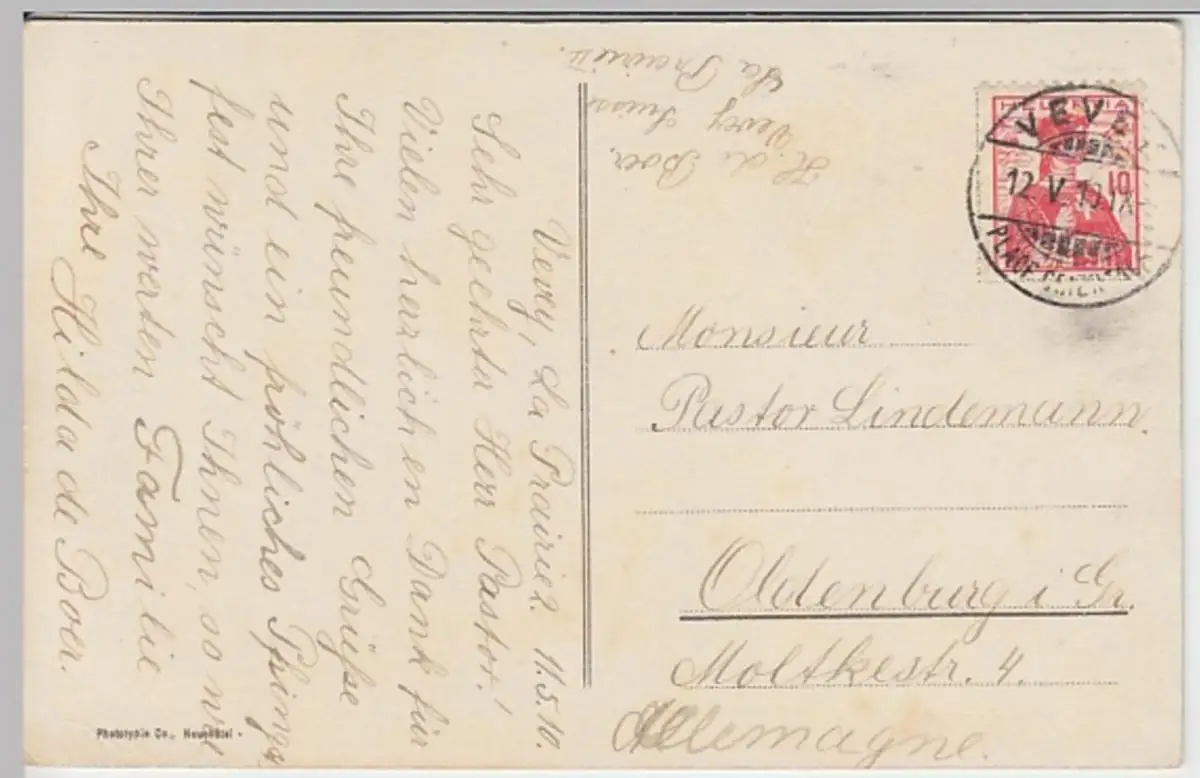 Vevey, La Prairie 2. 11.5.10.
Sehr geehrter Herr Pastor!
Vielen herrlichen Dank für
Ihre freundlichen Grüße
und ein fröhliches Pfings
fest wünscht Ihnen, so wie
Ihrer werten Familie
Ihre Hilda de Boer.
H. de Boer.
Vevey Suisse
La Prairie II.
HELVETIA
10
VEVEY
12 V 10
Monsieur
Pastor Lindemann
Oldenburg i Gr.
Moltkestr. 4.
Allemagne.
Phototypie Co., Neuchâtel